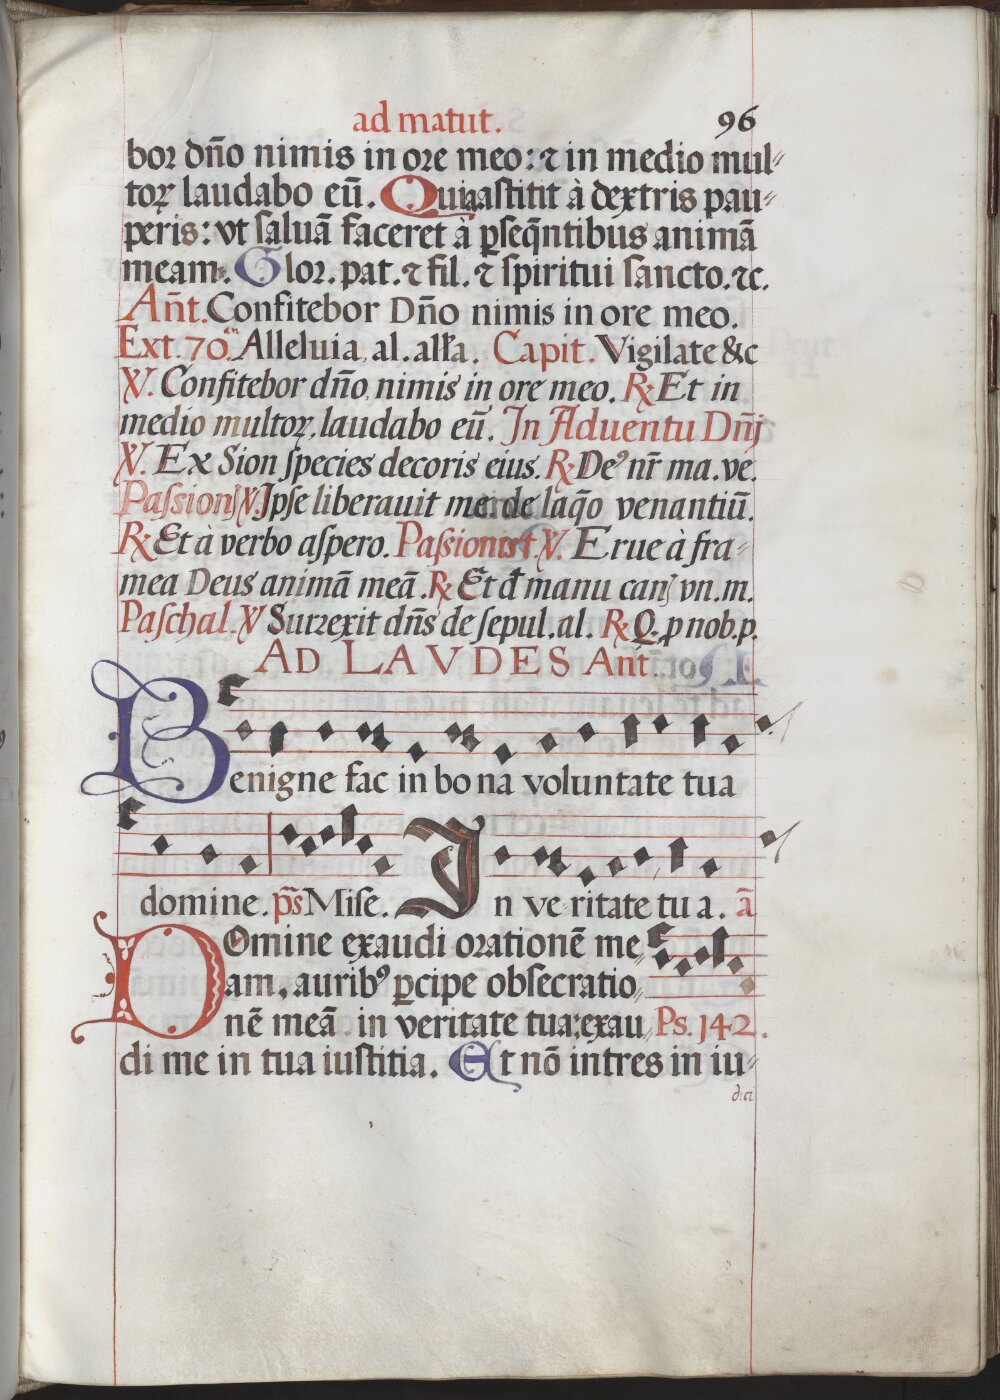 ad matut. 96
bor dño nimis in ore meo: ⁊ in medio mul⸗
toꝝ laudabo eū. Quia astitit à dextris pau⸗
peris: vt saluā faceret à ꝑseq̃ntibus animā
meam. Glor. pat. ⁊ fil. ⁊ spiritui sancto. ⁊c.
Añt. Confitebor Dño nimis in ore meo.
Ext. 70.am Alleluia, al. alła. Capit. Vigilate &c
℣. Confitebor dño, nimis in ore meo. ℞ Et in
medio multoꝝ, laudabo eū. In Aduentu Dñj
℣. Ex Sion species decoris eius. ℞ De9 nr̃ ma. ve.
Passionis ℣. Ipse liberauit me de laq̃o venantiū.
℞ Et à verbo aspero. Passionis ℣. Erue à fra⸗
mea Deus animā meā. ℞ Et đ manu canis vn. m.
Paschal. ℣ Surrexit dñs de sepul. al. ℞ Q. p nob. p.
AD LAVDES Ant.
Benigne fac in bo na voluntate tua
domine. ps̃ Mise. In ve ritate tu a. ā
Domine exaudi orationē me
am, aurib9 ꝑcipe obsecratio
nē meā in veritate tua: exau Ps. 142.
di me in tua iustitia. Et nō intres in iu⸗
dici